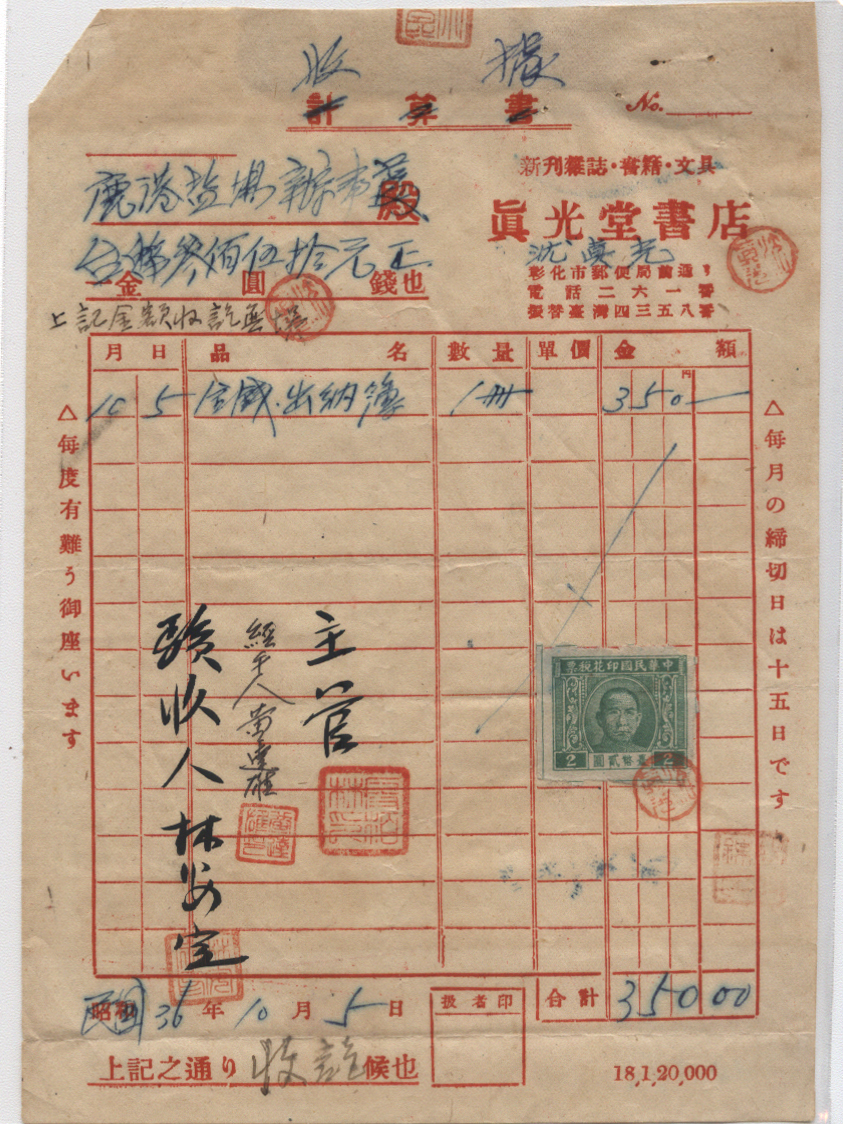 收 據
計 算 書
No.
鹿港鹽場辦事處
殿
新刊雜誌・書籍・文具
眞光堂書店
沈眞光
彰化市郵便局前通リ
電話二六一番
振替臺灣四三五八番
台幣參佰伍拾元正
一金 圓 錢也
上記金額收訖無
月 日 品 名 數 量 單 價 金 額
円
10 5 出納簿 1冊 350
△每度有難う御座います
△每月の締切日は十五日です
主管
經手人 黃達雄
驗收人 林安定
中華民國印花稅票
臺幣貳圓
2 2
合計 350 00
民國 昭和 36 年 10 月 5 日
扱者印
上記之通り 收訖 候也
18,1,20,000